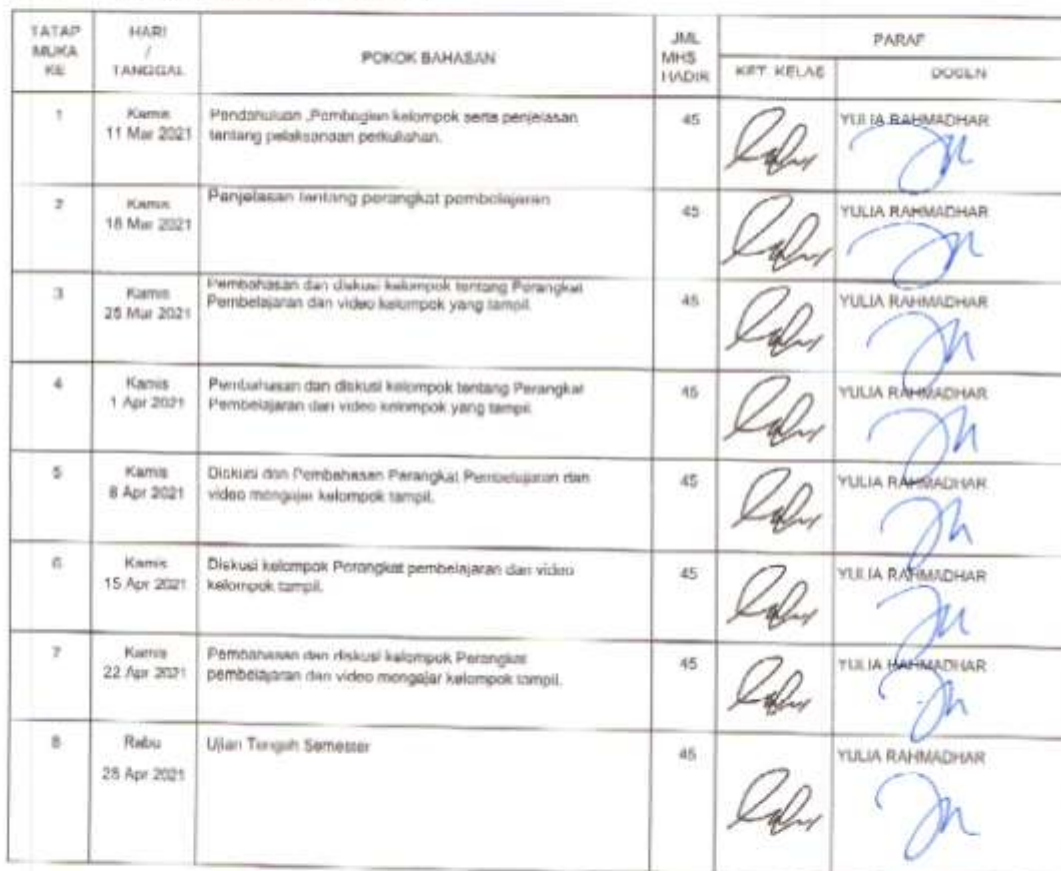 TATAP
MUKA
KE
HARI
/
TANGGAL
POKOK BAHASAN
JML
MHS
HADIR
PARAF
KET. KELAS
DOSEN
1
Kamis
11 Mar 2021
Pendahuluan ,Pembagian kelompok serta penjelasan
tentang pelaksanaan perkuliahan.
45
YULIA RAHMADHAR
2
Kamis
18 Mar 2021
Penjelasan tentang perangkat pembelajaran
45
YULIA RAHMADHAR
3
Kamis
25 Mar 2021
Pembahasan dan diskusi kelompok tentang Perangkat
Pembelajaran dan video kelompok yang tampil.
45
YULIA RAHMADHAR
4
Kamis
1 Apr 2021
Pembahasan dan diskusi kelompok tentang Perangkat
Pembelajaran dan video kelompok yang tampil.
45
YULIA RAHMADHAR
5
Kamis
8 Apr 2021
Diskusi dan Pembahasan Perangkat Pembelajaran dan
video mengajar kelompok tampil.
45
YULIA RAHMADHAR
6
Kamis
15 Apr 2021
Diskusi kelompok Perangkat pembelajaran dan video
kelompok tampil.
45
YULIA RAHMADHAR
7
Kamis
22 Apr 2021
Pembahasan dan diskusi kelompok Perangkat
pembelajaran dan video mengajar kelompok tampil.
45
YULIA RAHMADHAR
8
Rabu
28 Apr 2021
Ujian Tengah Semester
45
YULIA RAHMADHAR